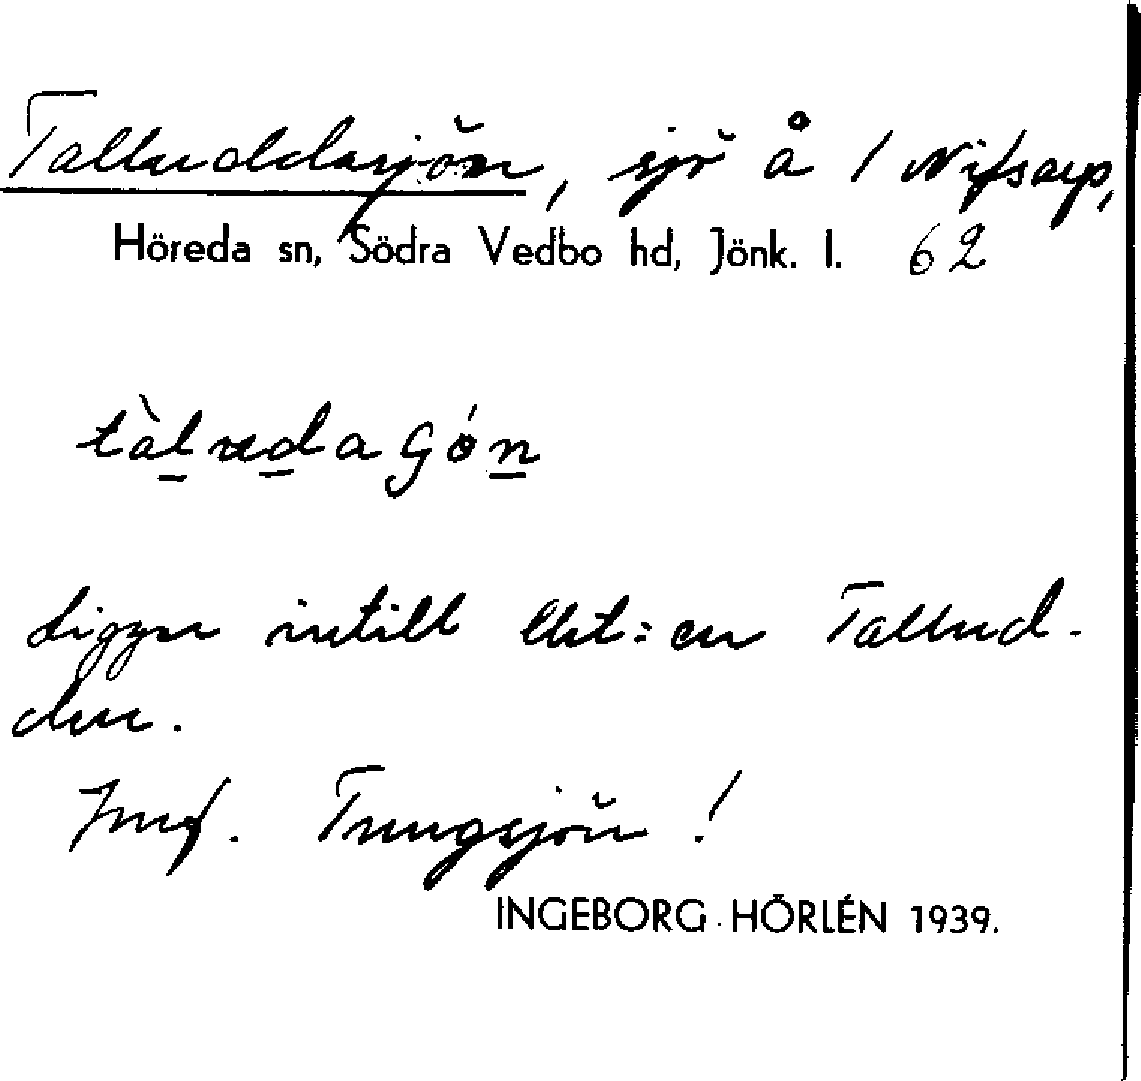 Talluddasjön, sjö å 1 Nifsarp,
Höreda sn, Södra Vedbo hd, Jönk. l. 62
Ligger intill lht:en Tallud-
den.
Jmf. Trungsjön!
INGEBORG HÖRLÉN 1939.